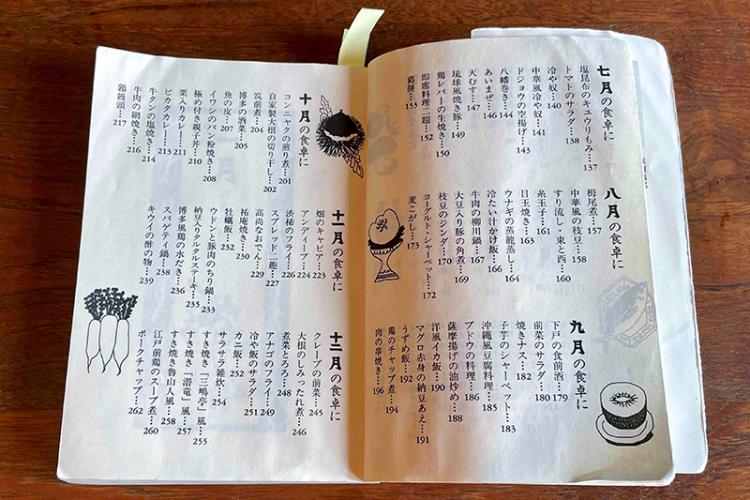 七月の食卓に
塩昆布のキュウリもみ…137
トマトのサラダ…138
冷や奴…140
中華風冷や奴…141
ドジョウの空揚げ…143
八幡巻き…144
あいまぜ…146
天むす…147
琉球風焼き豚…149
鶏レバーの生焼き…150
即席料理二題…152
葛餅…153
八月の食卓に
栂尾煮…157
中華風の枝豆…158
すり流し・東と西…160
糸玉子…161
目玉焼き…163
ウナギの蒸籠蒸し…164
冷たい汁かけ飯…166
牛肉の柳川鍋…167
大豆入り豚の角煮…169
枝豆のジンダ…170
ヨーグルト・シャーベット…172
麦こがし…173
九月の食卓に
下戸の食前酒…179
前菜のサラダ…180
焼きナス…182
子芋のシャーベット…183
沖縄風豆腐料理…185
ブドウの料理…186
薩摩揚げの油炒め…188
洋風イカ飯…190
マグロ赤身の納豆あえ…191
うずめ飯…192
鶏のチャップ煮…194
肉の串焼き…196
十月の食卓に
コンニャクの煎り煮…201
自家製大根の切り干し…202
筑前煮…204
博多の酒菜…205
魚の皮…207
イワシのパン粉焼き…208
極め付き親子丼…210
栗入りカレー…211
ピカタカレー…213
牛タンの塩焼き…214
牛肉の網焼き…216
鶉饅頭…217
十一月の食卓に
畑のキャビア…223
アンディーブ…224
渋柿のフライ…226
スプレッド二趣…227
高尚なおでん…229
祐庵焼き…230
牡蠣飯…232
ウドンと豚肉のちり鍋…233
納豆入りタルタルステーキ…235
博多風鶏の水だき…236
スパゲティ鍋…238
キウイの酢の物…239
十二月の食卓に
クレープの前菜…245
大根のしみったれ煮…246
煮菜とろろ…248
アナゴのフライ…249
冷や飯のサラダ…251
カニ飯…252
サラサラ雑炊…254
すき焼き「三嶋亭」風…255
すき焼き「潜竜」風…257
すき焼き魯山人風…258
江戸前鶏のスープ煮…260
ポークチャップ…262